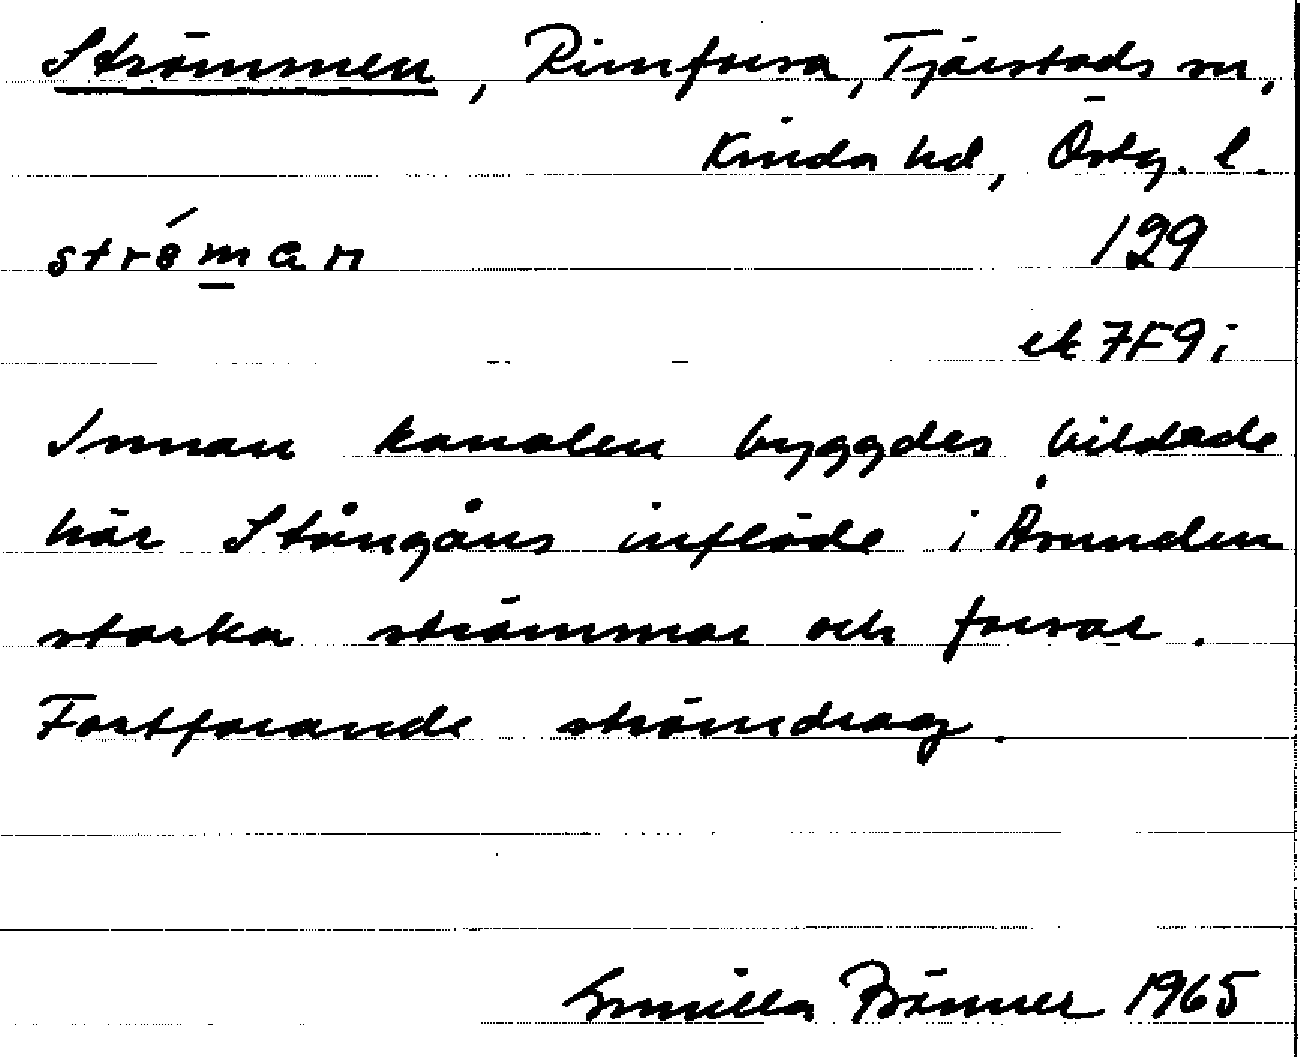 Strömmen, Rimforsa, Tjärstads sn,
Kinda hd, Östg. l.
strö́man
129
ek 7F9i
Innan kanalen byggdes bildade
här Stångåns inflöde i Åsunden
starka strömmar och forsar.
Fortfarande strömdrag.
Gunilla Brömer 1965